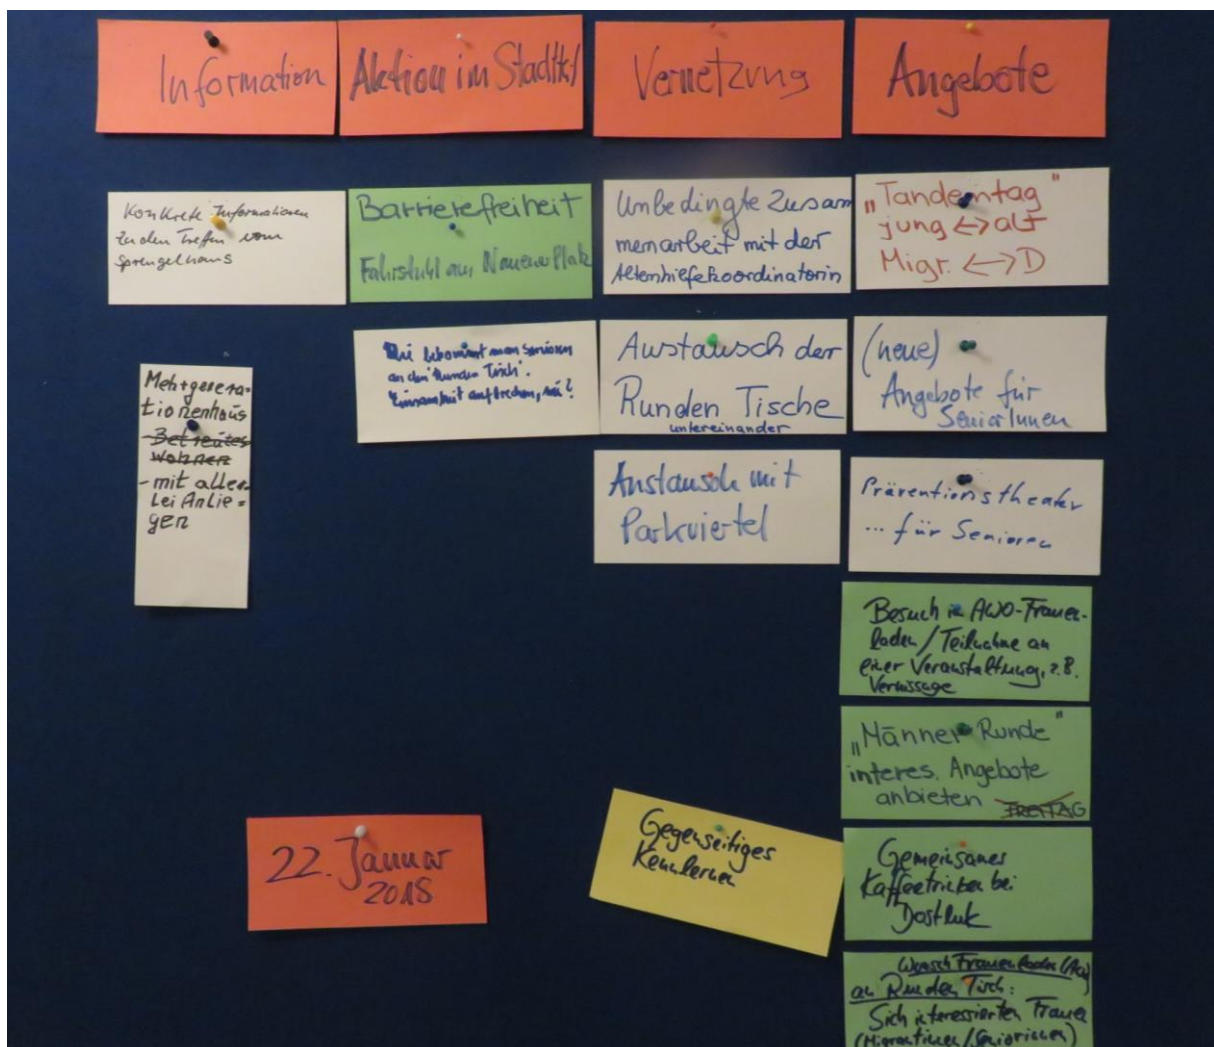 Information
Aktion im Stadtteil
Vernetzung
Angebote
Konkrete Informationen
zu den Treffen vom
Sprengelhaus
Mehrgenera-
tionenhaus
- Betreutes
Wohnen
- mit aller
lei Anlie=
gen
Barrierefreiheit
Fahrstuhl am Nauener Platz
Wie bekommt man Senioren
an den "Runden Tisch".
Einsamkeit aufbrechen, wie?
Unbedingte Zusam
menarbeit mit der
Altenhilfekoordinatorin
Austausch der
Runden Tische
untereinander
Austausch mit
Parkviertel
„Tandemtag"
jung <-> alt
Migr. <-> D
(neue)
Angebote für
SeniorInnen
Präventionstheater
... für Senioren
Besuch in AWO-Frauen-
laden / Teilnahme an
einer Veranstaltung, z.B.
Vernissage
„Männer Runde"
interes. Angebote
anbieten FREITAG
Gemeinsames
Kaffeetrinken bei
Dostluk
Wunsch Frauenladen
an Runden Tisch:
Sich interessierten Frauen
(Migrantinnen / Seniorinnen)
Gegenseitiges
Kennlernen
22. Januar
2018